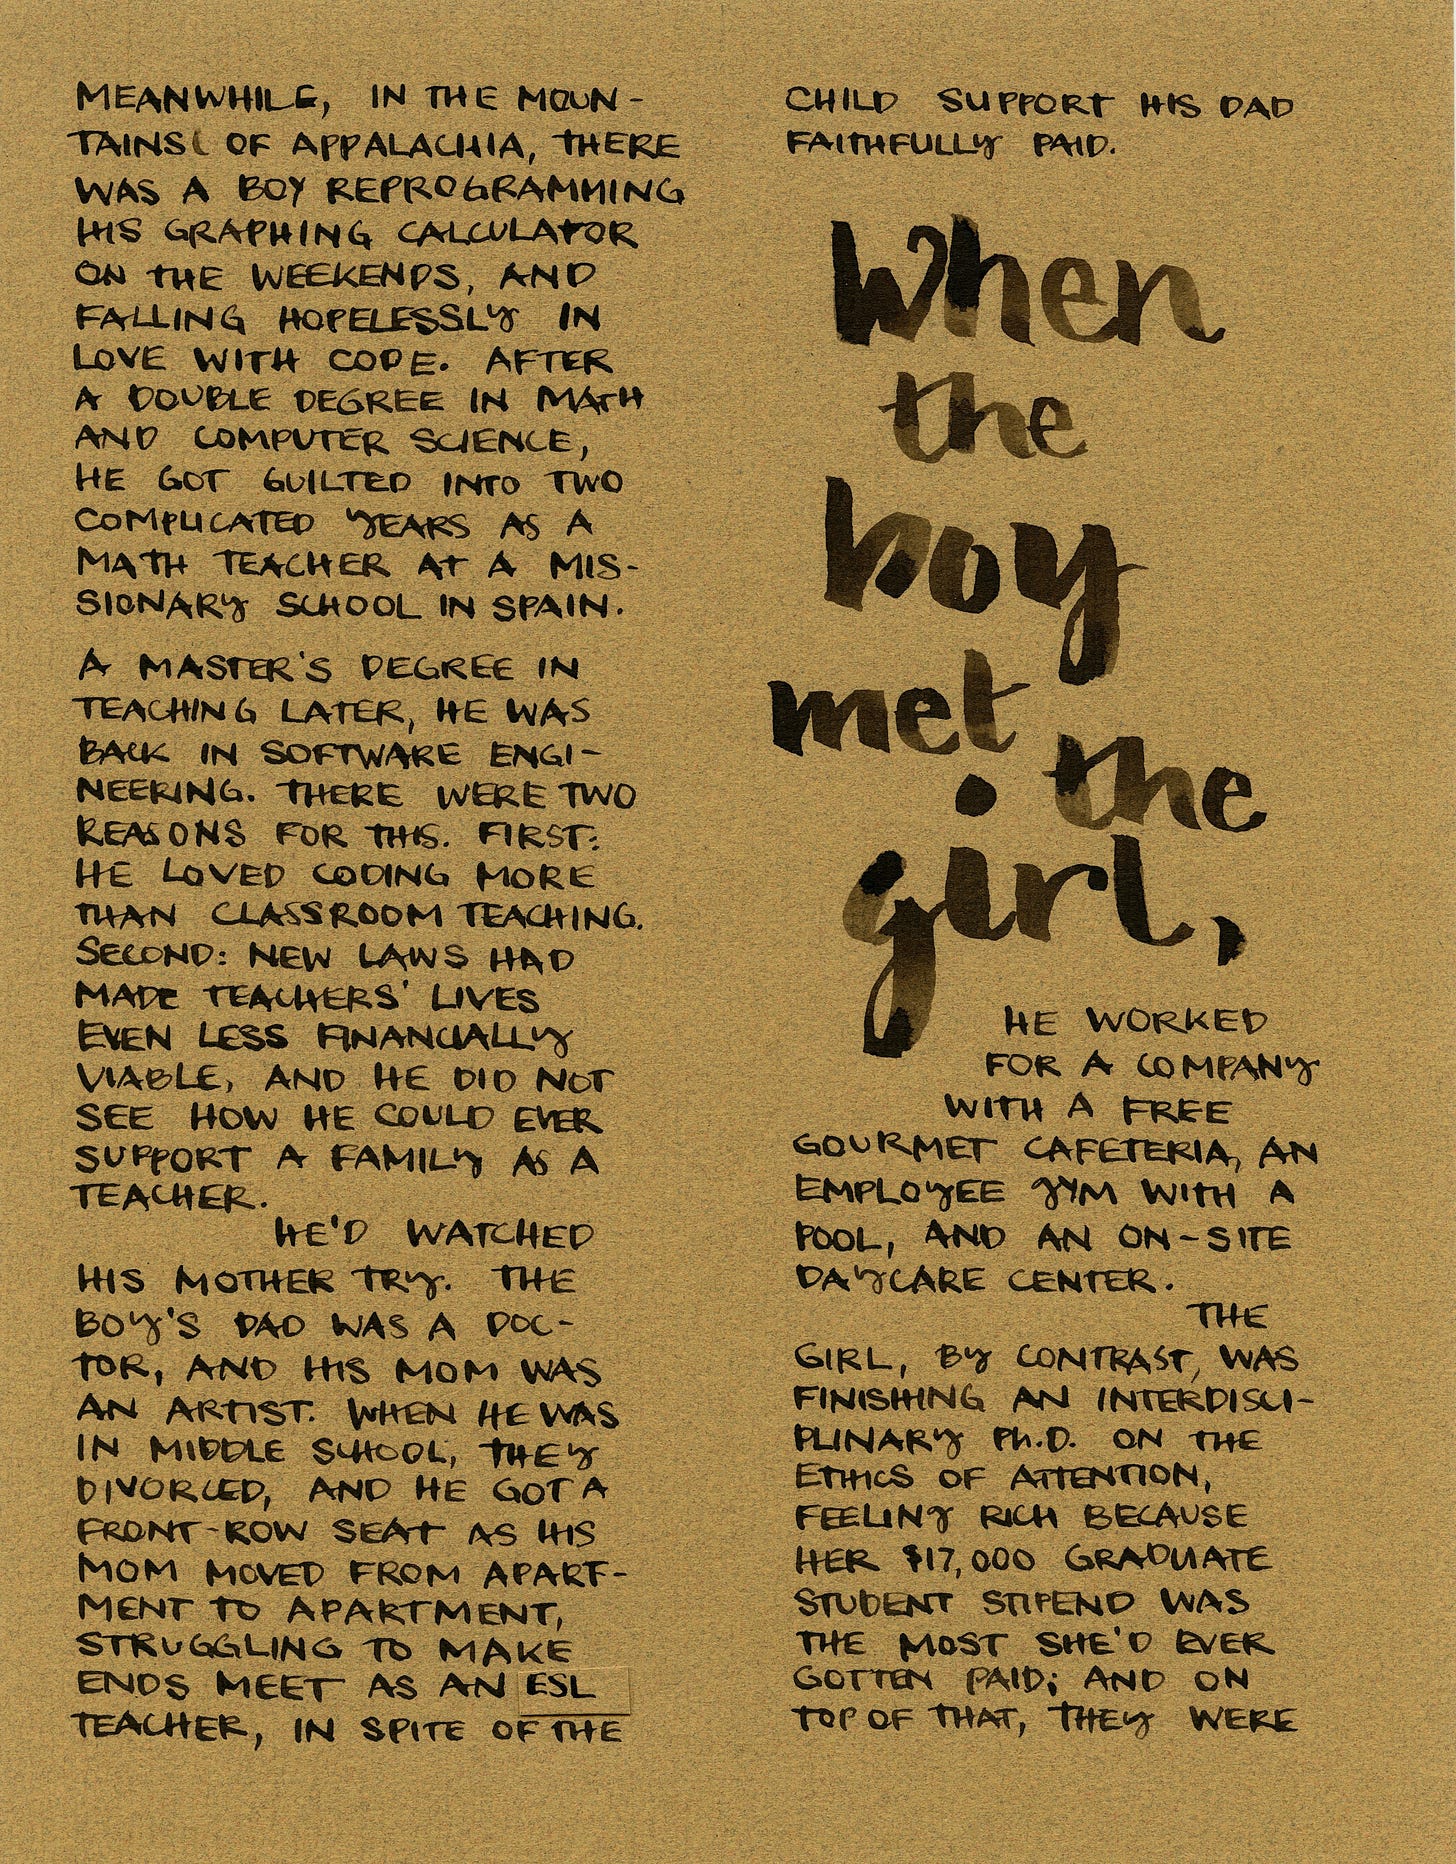 MEANWHILE, IN THE MOUN-
TAINS OF APPALACHIA, THERE
WAS A BOY REPROGRAMMING
HIS GRAPHING CALCULATOR
ON THE WEEKENDS, AND
FALLING HOPELESSLY IN
LOVE WITH CODE. AFTER
A DOUBLE DEGREE IN MATH
AND COMPUTER SCIENCE,
HE GOT GUILTED INTO TWO
COMPLICATED YEARS AS A
MATH TEACHER AT A MIS-
SIONARY SCHOOL IN SPAIN.
A MASTER'S DEGREE IN
TEACHING LATER, HE WAS
BACK IN SOFTWARE ENGI-
NEERING. THERE WERE TWO
REASONS FOR THIS. FIRST:
HE LOVED CODING MORE
THAN CLASSROOM TEACHING.
SECOND: NEW LAWS HAD
MADE TEACHERS' LIVES
EVEN LESS FINANCIALLY
VIABLE, AND HE DID NOT
SEE HOW HE COULD EVER
SUPPORT A FAMILY AS A
TEACHER.
HE'D WATCHED
HIS MOTHER TRY. THE
BOY'S DAD WAS A DOC-
TOR, AND HIS MOM WAS
AN ARTIST. WHEN HE WAS
IN MIDDLE SCHOOL, THEY
DIVORCED, AND HE GOT A
FRONT-ROW SEAT AS HIS
MOM MOVED FROM APART-
MENT TO APARTMENT,
STRUGGLING TO MAKE
ENDS MEET AS AN ESL
TEACHER, IN SPITE OF THE
CHILD SUPPORT HIS DAD
FAITHFULLY PAID.
When
the
boy
met
the
girl,
HE WORKED
FOR A COMPANY
WITH A FREE
GOURMET CAFETERIA, AN
EMPLOYEE GYM WITH A
POOL, AND AN ON-SITE
DAYCARE CENTER.
THE
GIRL, BY CONTRAST, WAS
FINISHING AN INTERDISCI-
PLINARY Ph.D. ON THE
ETHICS OF ATTENTION,
FEELING RICH BECAUSE
HER $17,000 GRADUATE
STUDENT STIPEND WAS
THE MOST SHE'D EVER
GOTTEN PAID; AND ON
TOP OF THAT, THEY WERE